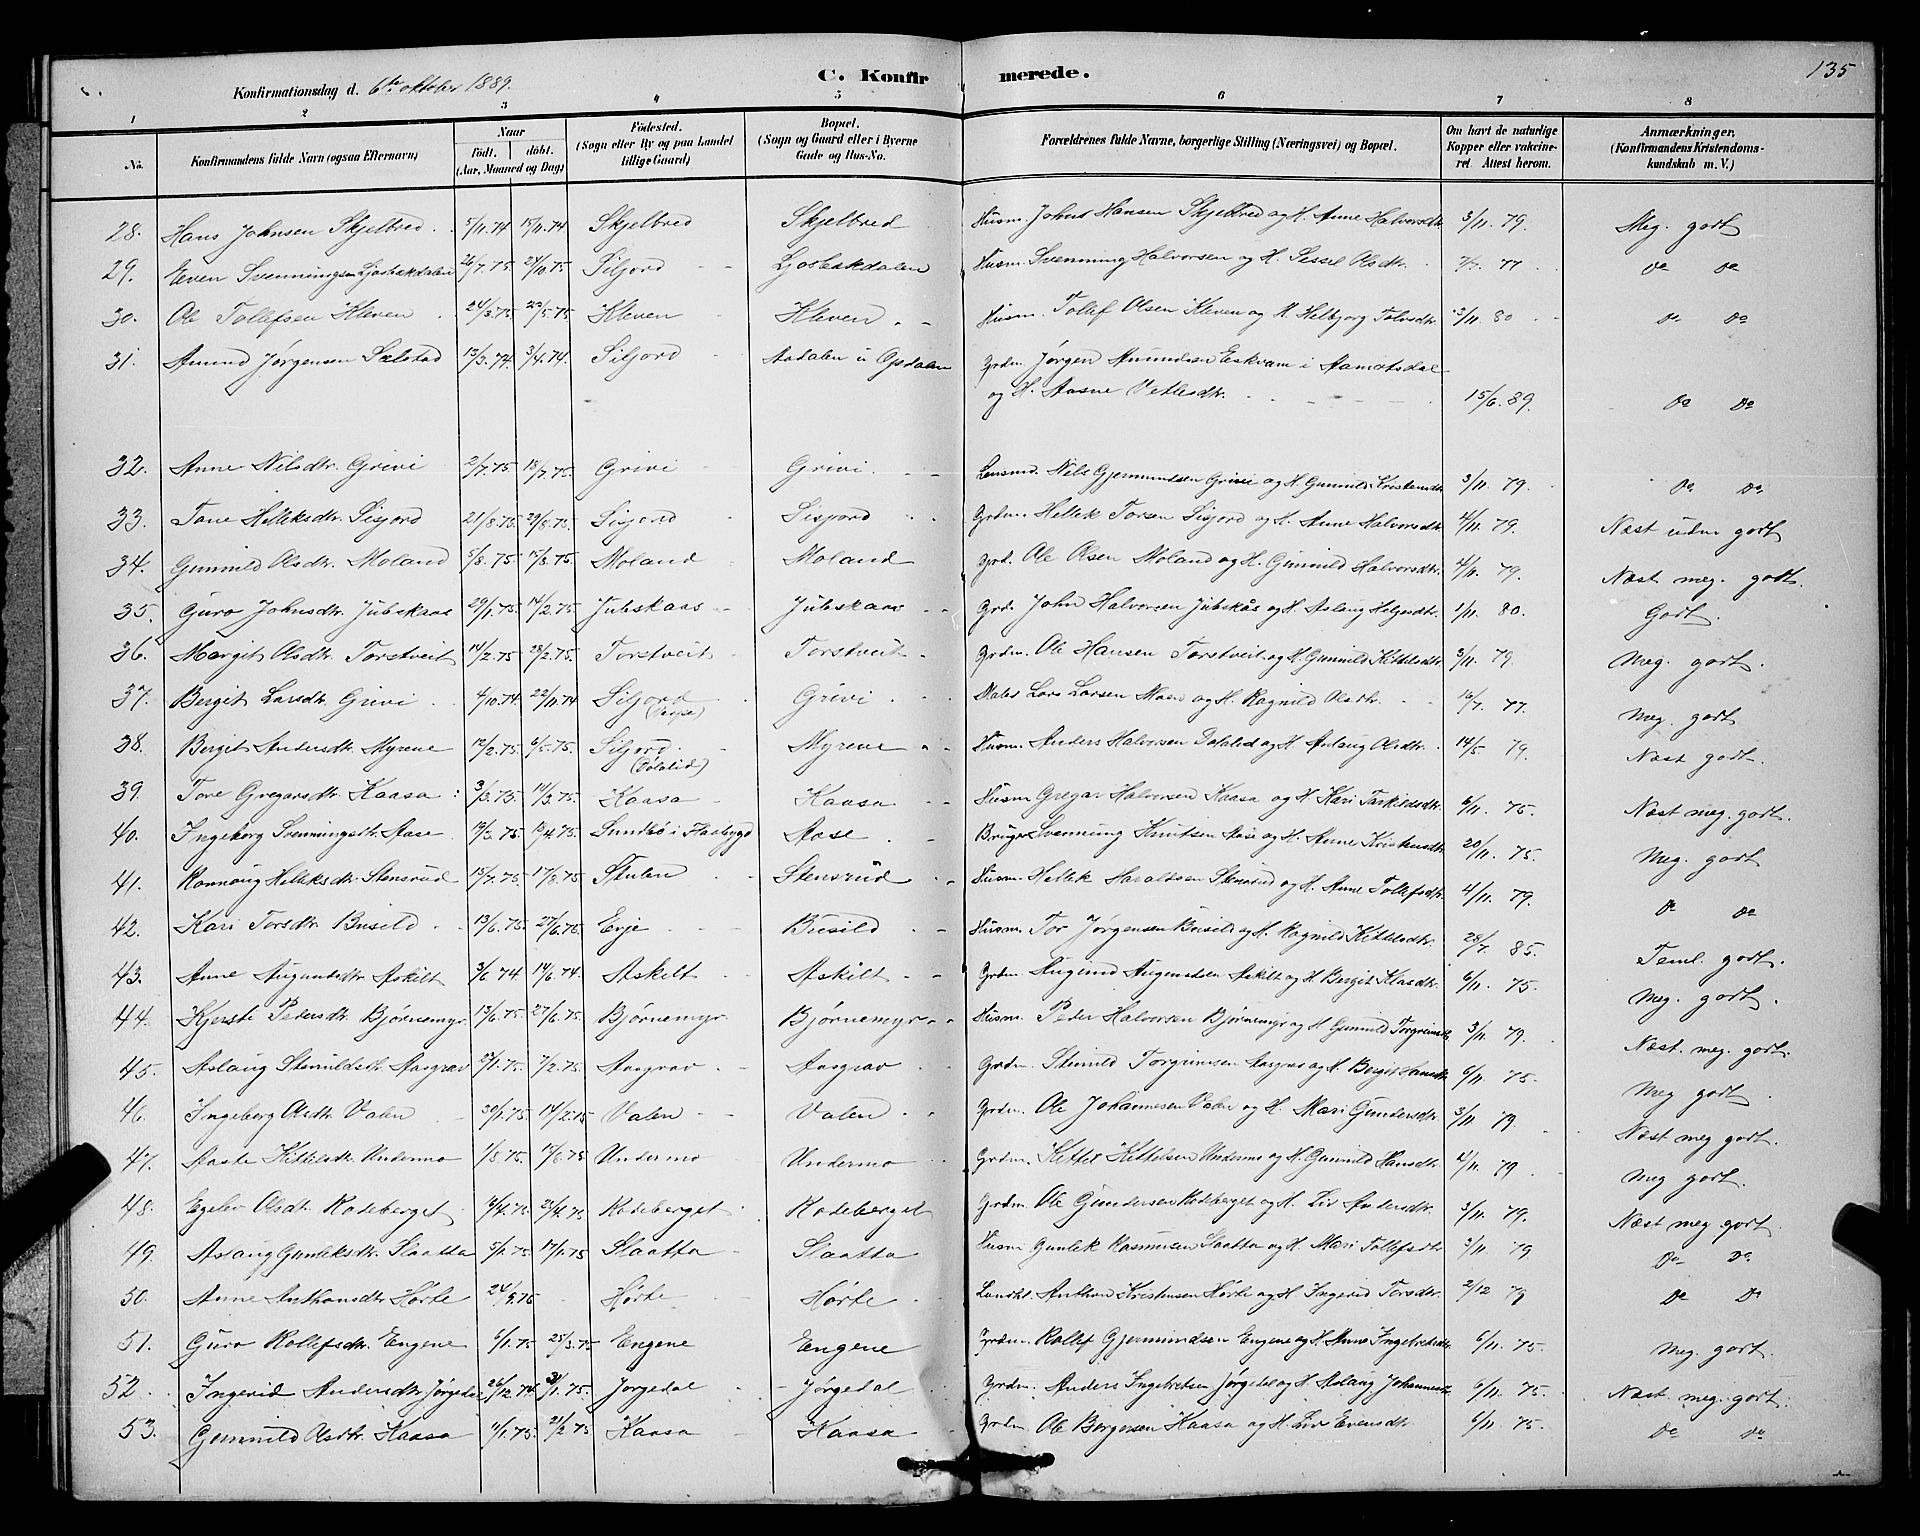 C. Konfirmerede. 135
Konfirmationsdag d. 6te oktober 1889.
1 2 3 4 5 6 7 8
No. Konfirmandens fulde Navn (ogsaa Efternavn) Naar født. døbt. (Aar, Maaned og Dag) Fødested. (Sogn eller By og paa Landet tillige Gaard) Bopæl. (Sogn og Gaard eller i Byerne Gade og Hus-No. Forældrenes fulde Navne, borgerlige Stilling (Næringsvei) og Bopæl. Om havt de naturlige Kopper eller vakcineret Attest herom. Anmærkninger. (Konfirmandens Kristendomskundskab m. V.)
28. Hans Johnsen Skjelbred 5/11.74 15/11.74 Skjelbred Skjelbred Husm. John Hansen Skjelbred og H. Anne Halvorsdtr 3/11. 79. Meg. godt
29. Even Svenningsen Ljosbækdalen 26/7.75 Siljord Ljosbækdalen Husm. Svenning Halvorsen og H. Sissel Olsdtr. 77 Do Do
30. Ole Tollefsen Kleven 24/3.75 23/5.75 Kleven Kleven Husm. Tollef Olsen Kleven og H. Helbjorg Tolvsdtr 3/11. 80 Do Do
31. Amund Jørgensen Sælstad 13/3.74. 3/4.74. Siljord Aadalen i Opdalen Grdm. Jørgen Amundsen Eskvam i Aamotsdal
og H. Aasne Vetlesdtr. 15/6. 89. Do Do
32. Anne Nilsdtr. Grivi 2/7.75 18/7.75 Grivi Grivi Lensmd. Nils Gjermundsen Grivi og H. Gunnild Kristensdtr 3/11. 79. Do Do
33. Tone Helleksdtr. Sisjord 21/8.75. 29/8.75. Sisjord Sisjord Grdm. Hellek Torsen Sisjord og H. Anne Halvorsdtr 4/11. 79. Næst udm godt
34. Gunnild Olsdtr. Moland 5/8.75 15/8.75. Moland Moland Grd. Ole Olsen Moland og H. Gunnild Halvorsdtr. 4/11. 79. Næst meg. godt.
35. Guro Johnsdtr. Jubskaas 29/1.75. 14/2.75. Jubskaas Jubskaas Grd. John Halvorsen Jubskås og H. Aslaug Helgesdtr. 1/11. 80. Godt.
36. Margit Olsdtr. Torstveit 14/2.75 28/2.75. Torstveit Torstveit Grdm. Ole Hansen Torstveit og H. Gunnild Kittelsdtr 3/11. 79. Meg. godt.
37. Bergit Larsdtr. Grivi 4/10.74. 22/11.74 Siljord Grivi Lars Larsen Moen og H. Ragnild Olsdtr. 16/7. 77. Meg. godt
38. Bergit Andersdtr. Myrene 12/2.75. 6/5.75. Siljord. Myrene Husm. Anders Halvorsen Dalalid og H. Aslaug Olsdtr. 14/5 79. Næst godt.
(Dalalid)
39. Tone Gregarsdtr. Kaasa 3/3.75. 14/3.75. Kaasa Kaasa Husm Gregar Halvorsen Kaasa og H. Kari Tarkildsdtr. 6/11. 75. Næst meg. godt.
40. Ingebørg Svenningsdtr. Aase 75 4.75. Sundbø i Flaabygd Aase Bruger Svenning Knutsen Aase og H. Anne Kristensdtr 20/11. 75. Meg. godt
41. Rannaug Helleksdtr. Stensrud 15/7.75. 17/8.75. Stulen Stensrud Husm. Hellek Haraldsen Stensrud og H. Anne Tollefsdtr. 4/11. 79. Do Do
42. Kari Torsdtr. Busild 13/6.75. 27/6.75. Evje Busild Husm. Tor Jørgensen Busild og H. Ragnild Kittelsdtr. 28/7. 85. Teml. godt.
43. Anne Augundsdtr Askilt 3/6 74 14/6.74. Askilt Askilt Grdm. Augund Augundsen Askilt og H. Bergit Klasdtr. 6/11. 75. Meg. godt.
44. Kjersti Pedersdtr. Bjørnemyr 13/6.75. 27/6.75. Bjørnemyr Bjørnemyr Husm. Peder Halvorsen Bjørnemyr og H. Gunnild Torgrimsdtr 3/11. 79. Næst. meg. godt.
45. Aslaug Stenuldsdtr. Aasgrav 7/2.75. Aasgrav Aasgrav Grdm. Stenuld Torgrimsen Aasgrav og H. Bergit Hansdtr 6/11. 75. Meg godt.
46. Ingeberg Olsdtr. Valen 30/1.75. 14/2.75 Valen Valen Grdm. Ole Johannesen Valen og H. Mari Gundersdtr 3/11. 79. Næst meg godt.
47. Aaste Kittelsdtr. Undermo 1/8.75. 15/8 75. Undermo Undermo Grdm. Kittel Kittelsen Undermo og H. Gunnild Hansdtr. 4/11. 79 Meg godt.
48. Egelev Olsdtr. Rodeberget 4.75. 25/4.75 Rodeberget Rodeberget Grdm. Ole Gundersen Rodeberget og H. Liv Andersdtr. 3/11. 79. Næst meg godt.
49. Aslaug Gunleksdtr. Slaatta 5/1.75 17/1.75 Slaatta Slaatta Husm Gunlek Rasmusen Slaatta og H. Mari Tollefsdtr 3/11. 79 Do Do
50. Anne Anthonsdtr Hørte 24/9.75 Hørte Hørte Anthon Kristensen Hørte og H. Ingerid Torsdtr. 2/12 79 Do Do
51. Guro Rollefsdtr. Engene 6/1.75 25/3.75 Engene Engene Grdm. Rollef Gjermundsen Engene og H. Anne Ingebretsdtr 6/11. 75. Meg. godt.
52. Ingerid Andersdtr Jørgedal 26/12.74 31/1.75. Jorgedal Jørgedal Grdm. Anders Ingebretsen Jørgedal og H. Aslaug Johannesdtr 6/11. 75. Næst. meg. godt.
53. Gunnild Olsdtr. Kaasa 75. 21/2 75. Kaasa Kaasa Grdm Ole Børgesen Kaasa og H. Liv Evensdtr. 6/11. 75. Do Do